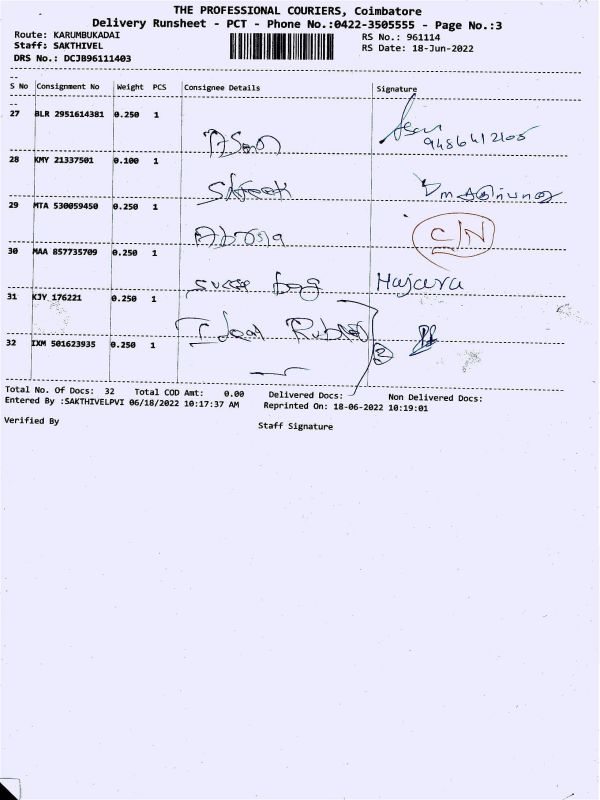 THE PROFESSIONAL COURIERS, Coimbatore
Delivery Runsheet - PCT - Phone No.:0422-3505555 - Page No.:3
Route: KARUMBUKADAI RS No.: 961114
Staff: SAKTHIVEL RS Date: 18-Jun-2022
DRS No.: DCJB96111403
S No Consignment No Weight PCS Consignee Details Signature
27 BLR 2951614381 0.250 1
9486412105
28 KMY 21337501 0.100 1
29 MTA 530059450 0.250 1
C/N
30 MAA 857735709 0.250 1
bag Hajara
31 KJY 176221 0.250 1
Ideal
32 IXM 501623935 0.250 1
2
Total No. Of Docs: 32 Total COD Amt: 0.00 Delivered Docs: Non Delivered Docs:
Entered By :SAKTHIVELPVI 06/18/2022 10:17:37 AM Reprinted On: 18-06-2022 10:19:01
Verified By
Staff Signature